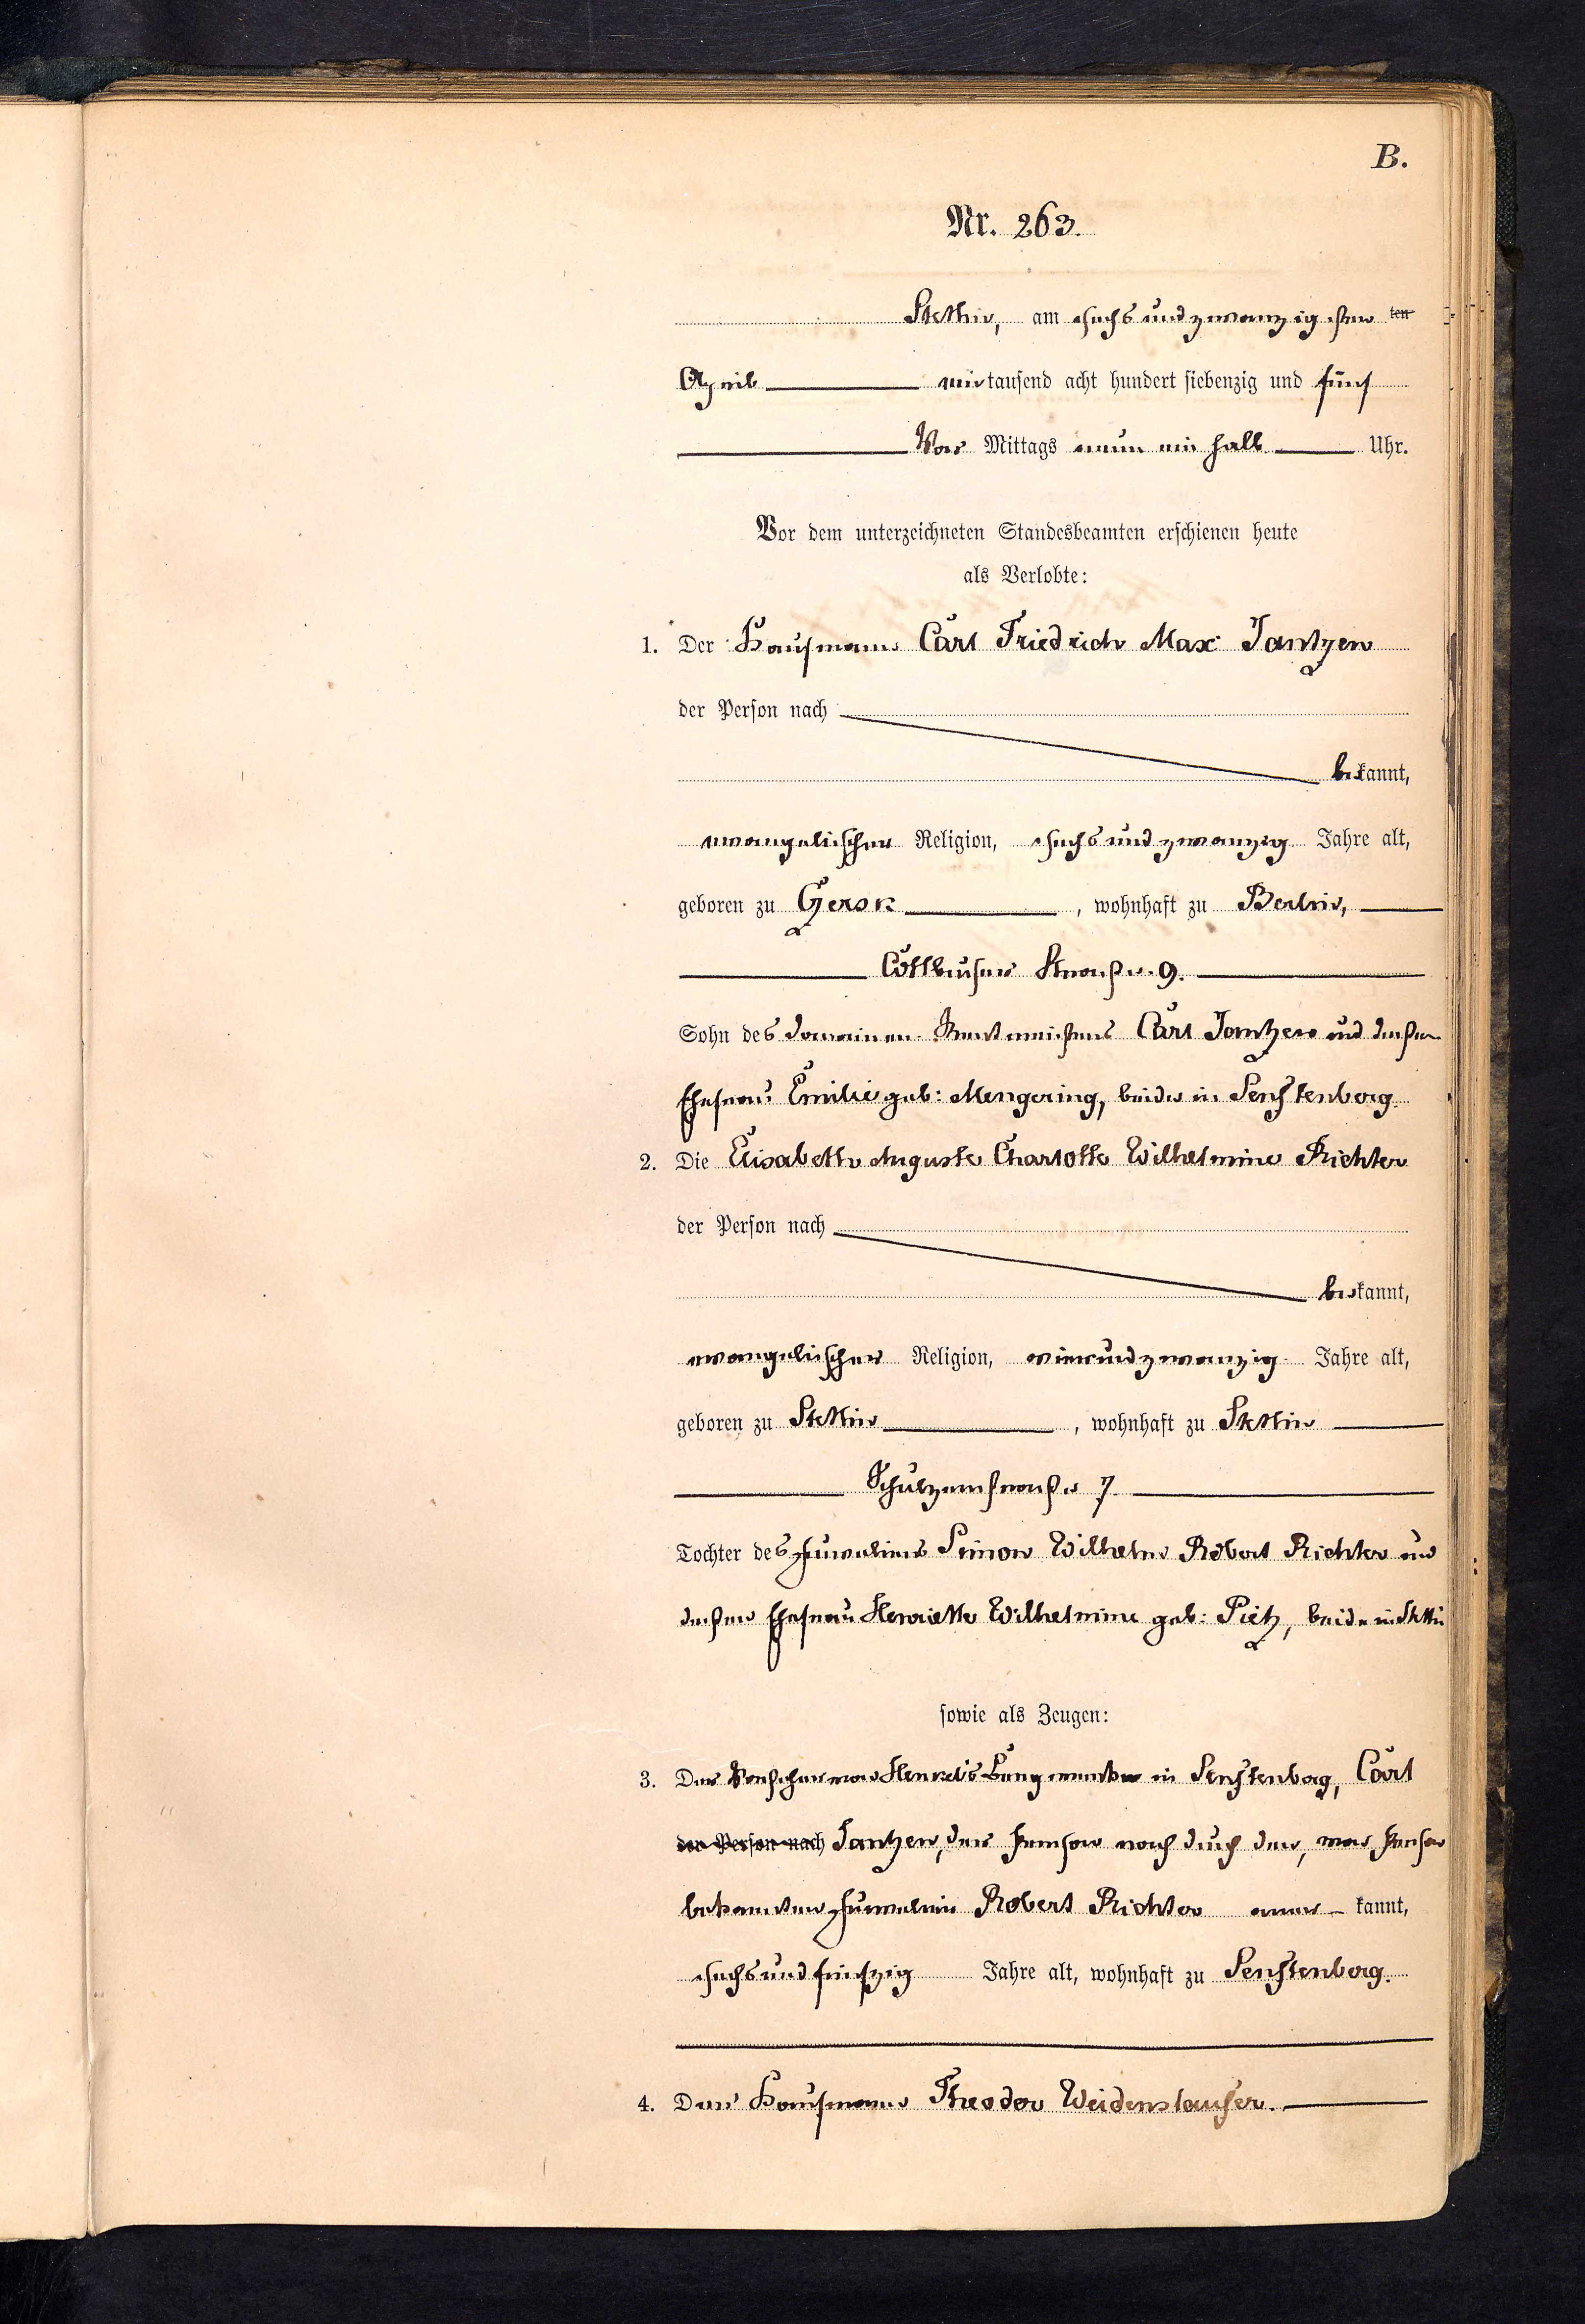 B.
Nr. 263.
Stettin, am sechs und zwanzigsten ten
April eintausend acht hundert siebenzig und fünf
Vor Mittags neun ein halb Uhr.
Vor dem unterzeichneten Standesbeamten erschienen heute
als Verlobte:
1. Der Kaufmann Carl Friedrich Max Jantzen
der Person nach
bekannt,
evangelischer Religion, sechs und zwanzig Jahre alt,
geboren zu Czersk, wohnhaft zu Berlin,
Cottbuser Straße 9.
Sohn des Domainen Rentmeisters Carl Jantzen und dessen
Ehefrau Emilie geb: Mengering, beide in Senftenberg.
2. Die Elisabeth Auguste Charlotte Wilhelmine Richter
der Person nach
bekannt,
evangelischer Religion, vierundzwanzig Jahre alt,
geboren zu Stettin, wohnhaft zu Stettin
Schulzenstraße 7.
Tochter des Juweliers Simon Wilhelm Robert Richter und
dessen Ehefrau Henriette Wilhelmine geb: Pietz, beide in Stettin
sowie als Zeugen:
3. Der Vorsteher von Henkel's Bergwerke in Senftenberg, Carl
der Person nach Jantzen, der Person nach durch den, von Person
bekannten Juwelier Robert Richter aner-kannt,
sechs und fünfzig Jahre alt, wohnhaft zu Senftenberg.
4. Der Kaufmann Theodor Weidenslaufer.